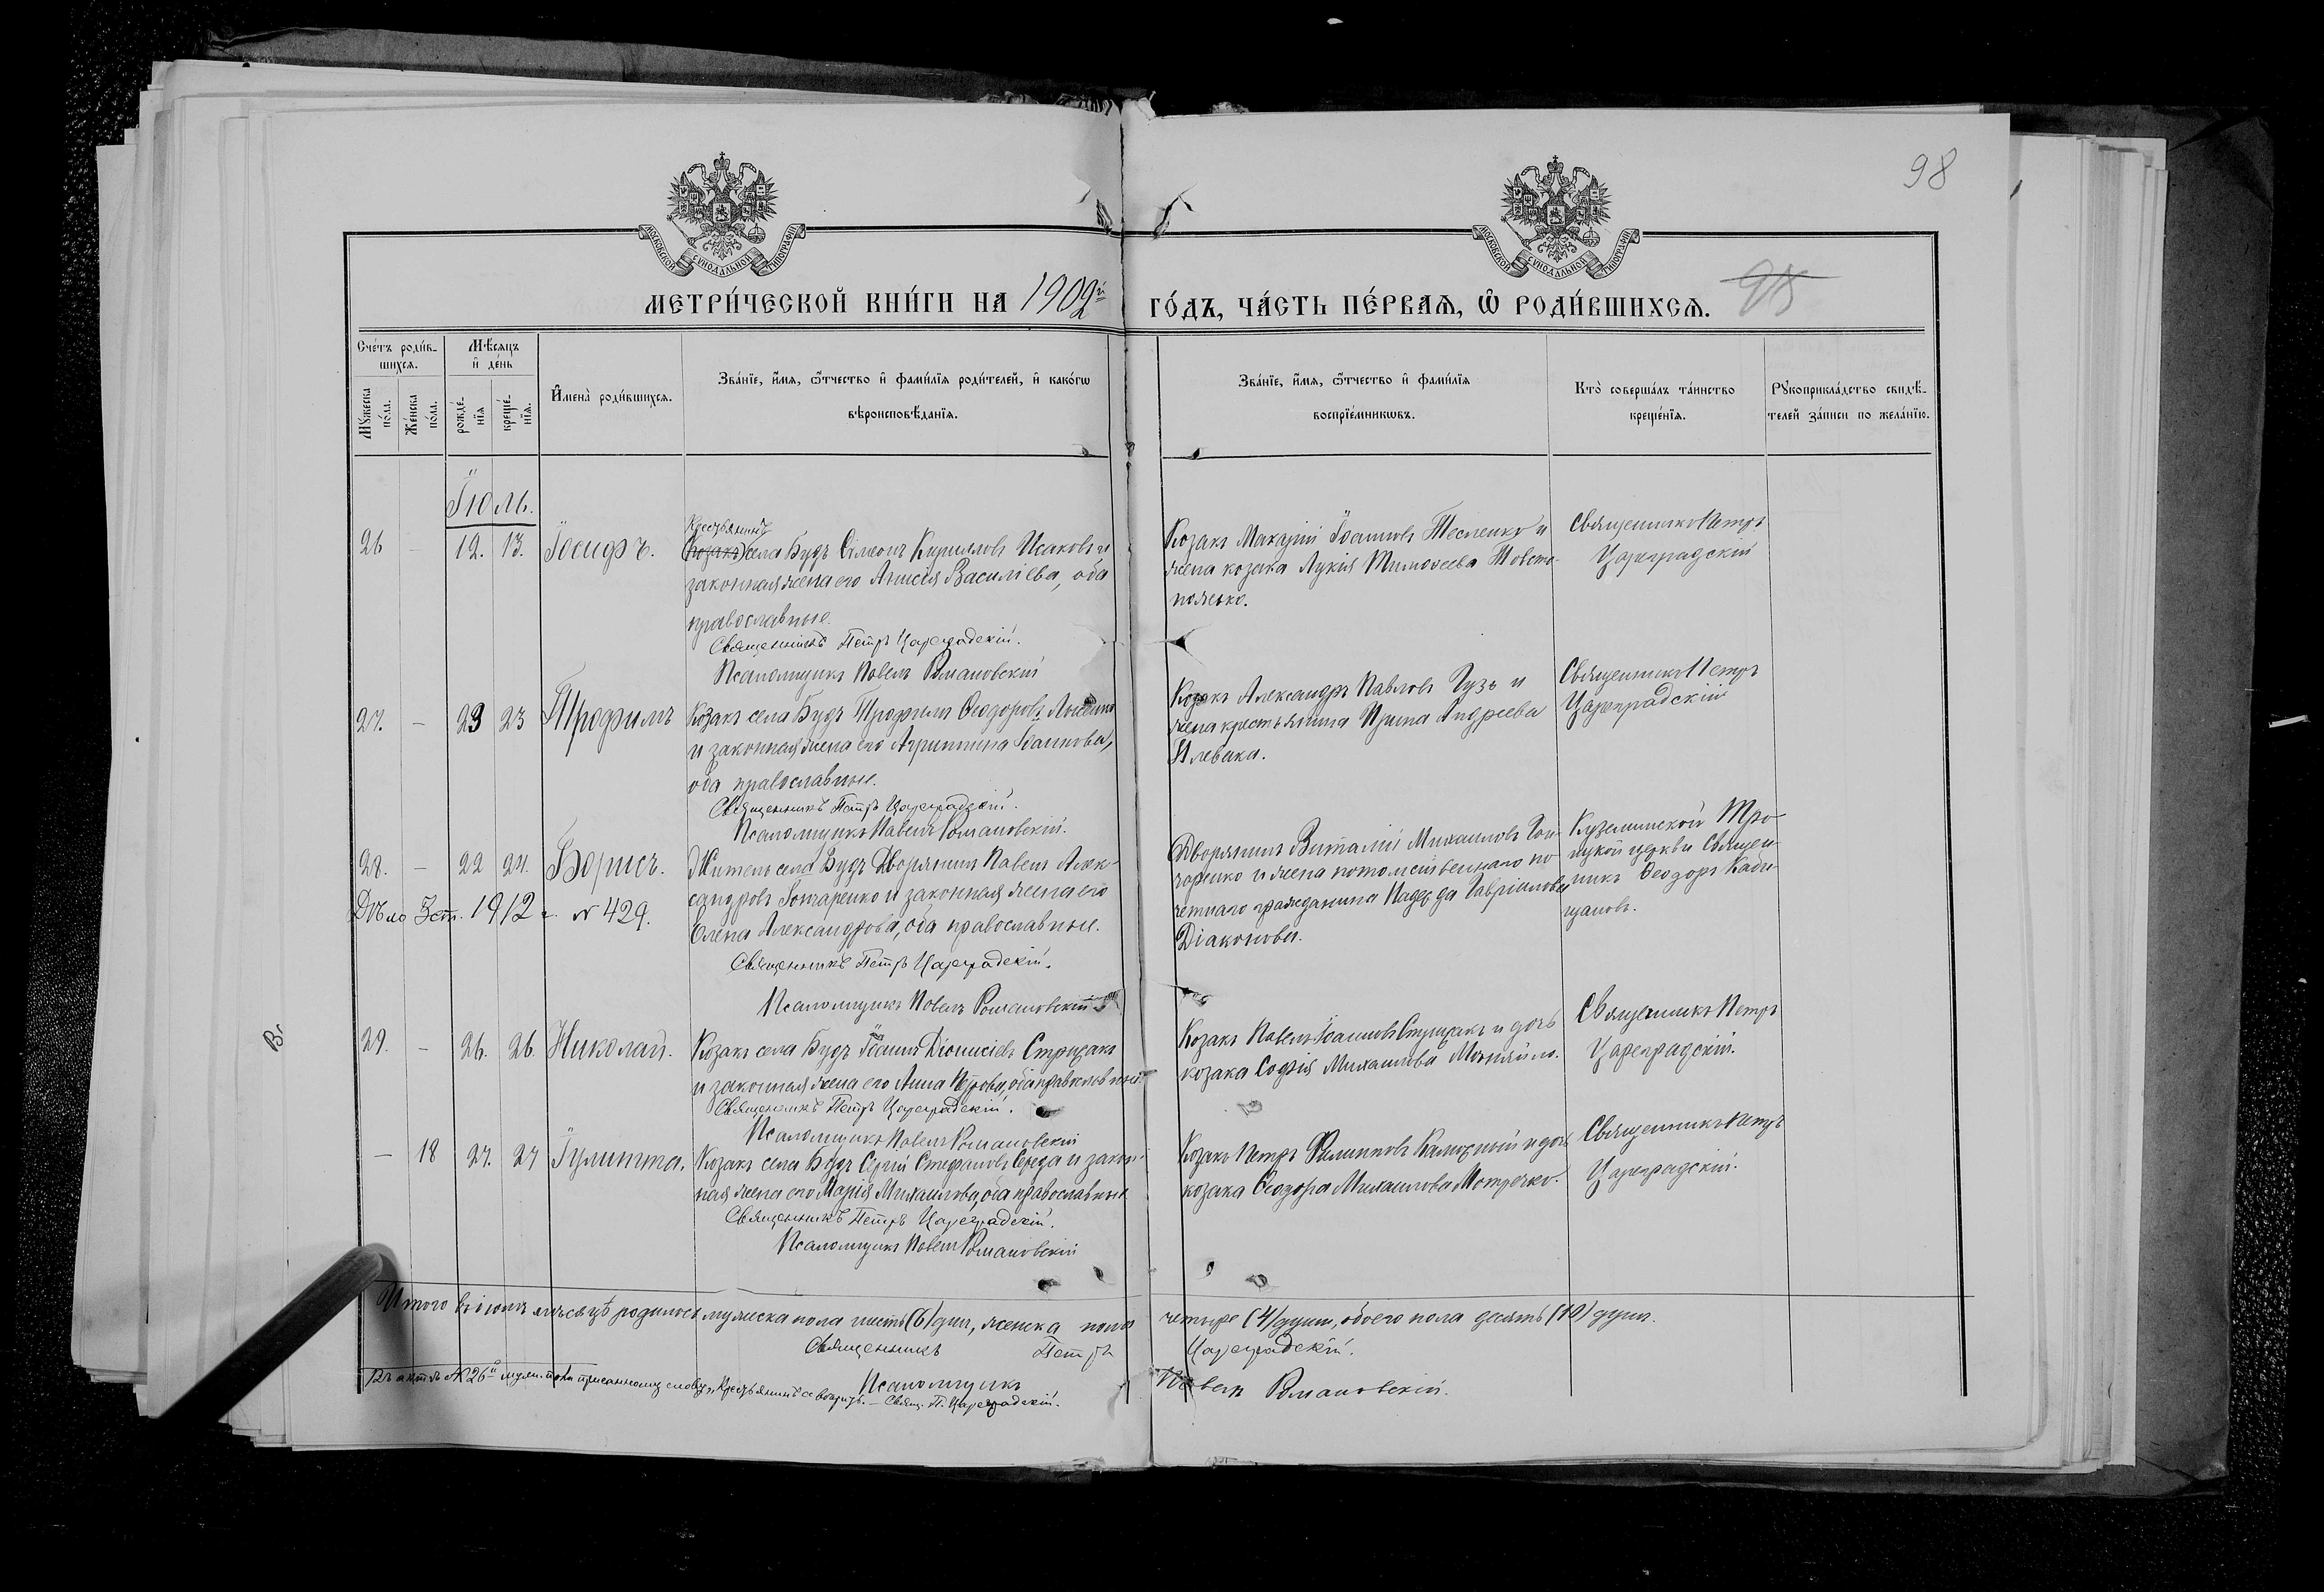 98
МОСКОВСКОЙ СУНОДАЛЬНОЙ ТИПОГРАФІИ
МОСКОВСКОЙ СУНОДАЛЬНОЙ ТИПОГРАФІИ
МЕТРИ́ЧЕСКОЙ КНИ́ГИ НА 1902й ГО́ДЪ, ЧА́СТЬ ПЕ́РВАѦ, Ѡ РОДИ́ВШИХСѦ.
Сче́тъ роди́вшихсѧ.
Мѣ́сѧцъ и҆ де́нь
Мꙋ́жеска по́ла.
Же́нска по́ла.
рожде́нїѧ
креще́нїѧ.
И҆мена̀ роди́вшихсѧ.
Зва́нїе, и҆́мѧ, ѻ҆́тчество и҆ фами́лїѧ роди́телей, и҆ како́гѡ
вѣроисповѣ́данїѧ.
Зва́нїе, и҆́мѧ, ѻ҆́тчество и҆ фами́лїѧ
воспрїе́мникѡвъ.
Кто̀ соверша́лъ та́инство
креще́нїѧ.
Рꙋкоприкла́дство свидѣ́телей за́писи по жела́нїю.
Іюль.
26 - 12. 13. Іосифъ.
Крестьянинъ
(козакъ) села Будъ Сѵмеонъ Кирилловъ Исаковъ и
законная жена его Анисія Василіева, оба
православные.
Священникъ Петръ Цареградскій.
Псаломщикъ Павелъ Романовскій
Козакъ Макарій Іоанновъ Тесленко и
жена козака Лукія Тимоѳеева Товсто-
Священникъ Петръ
Цареградскій
27. - 23 23 Трофимъ
Козакъ села Будъ Трофимъ Ѳеодоровъ
и законная жена его Агриппина Іоаннова,
оба православные.
Священникъ Петръ Цареградскій.
Псаломщикъ Павелъ Романовскій.
Козакъ Александръ Павловъ Гузь и
жена крестьянина Ирина Андреева
Плевака.
Священникъ Петръ
Цареградскій
28. - 22 24. Борисъ.
Дѣло Зст. 1912 г. № 429.
Житель села Будъ Дворянинъ Павелъ Алек-
сандровъ Гончаренко и законная жена его
Елена Александрова, оба православные.
Священникъ Петръ Цареградскій.
Псаломщикъ Павелъ Романовскій
Дворянинъ Виталій Михаиловъ Гон-
чаренко и жена потомственнаго по-
четнаго гражданина Надежда Гавріилова
Діаконова.
Куземинской Тро-
ицкой церкви Священ-
никъ Ѳеодоръ
29. - 26. 26. Николай.
Козакъ села Будъ Іоаннъ Діонисіевъ Стрижакъ
и законная жена его Анна Петрова, оба православные
Священникъ Петръ Цареградскій.
Псаломщикъ Павелъ Романовскій
Козакъ Павелъ Іоанновъ Стрижакъ и дочь
козака Софія Михаилова
Священникъ Петръ
Цареградскій.
- 18 27. 27 Іулитта.
Козакъ села Будъ Сергій Стефановъ Середа и закон-
ная жена его Марія Михаилова, оба православные
Священникъ Петръ Цареградскій.
Псаломщикъ Павелъ Романовскій
Козакъ Петръ Филипповъ Калюжный и дочь
козака Ѳеодора Михаилова Мотречко.
Священникъ Петръ
Цареградскій.
Итого въ іюлѣ мѣсяцѣ родилось мужеска пола шесть (6) душ, женска пола четыре (4) души, обоего пола десять (10) душ.
Священникъ Петръ Цареградскій.
Псаломщикъ Павелъ Романовскій.
Въ актѣ №26й муж. пола приписанному слову „Крестьянинъ" вѣрить. — Свящ. П. Цареградскій.